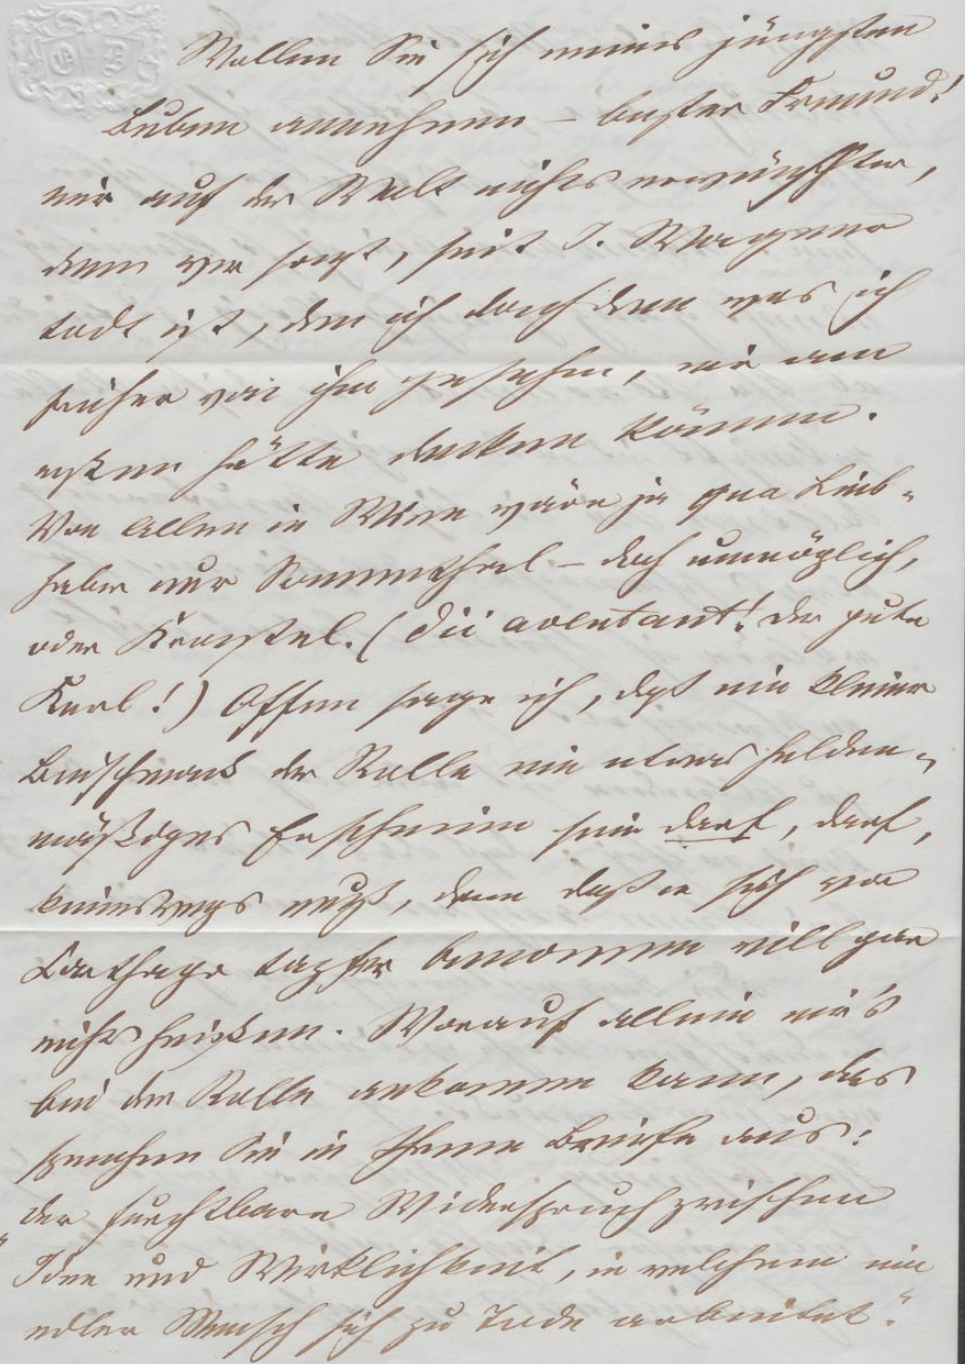 O D
Wollen Sie sich meines jüngsten
Buben annehmen – bester Freund!
mir auf der Welt nichts erwünschter,
denn wer sonst, seit J. Wagner
todt ist, den ich doch dem was ich
früher von ihm gesehen, mir am
ersten hätte denken können.
Von Allen in Wien wäre ja qua Lieb-
haber nur Sonnenthal – doch unmöglich,
oder Krastel. (Dii avertant! der gute
Kerl!) Offen sage ich, daß ein kleiner
Beischmack der Rolle ein etwas helden-
mäßiges Erscheinen sein darf, darf,
keineswegs muß, denn daß er sich vor
Carthago tapfer benommen will gar
nichts heißen. Worauf allein mir's
bei der Rolle ankommen kann, das
sprechen Sie in Ihrem Briefe aus:
der furchtbare Widerspruch zwischen
„Idee und Wirklichkeit, in welchem ein
edler Mensch sich zu Tode arbeitet."